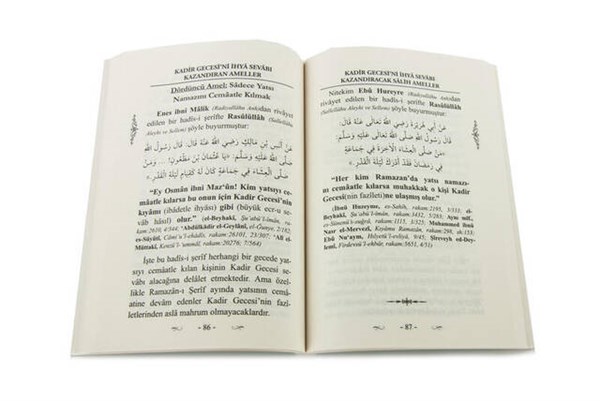 KADİR GECESİ'Nİ İHYÂ SEVÂBI
KAZANDIRAN AMELLER
Dördüncü Amel: Sâdece Yatsı
Namazını Cemâatle Kılmak
Enes ibni Mâlik (Radıyallâhu Anh)dan rivâyet
edilen bir hadîs-i şerifte Rasûlüllâh (Sallellâhu
Aleyhi ve Sellem) şöyle buyurmuştur:
عَنْ أَنَسِ بْنِ مَالِكٍ رَضِيَ اللّٰهُ عَنْهُ قَالَ: قَالَ رَسُولُ اللّٰهِ
صَلَّى اللّٰهُ عَلَيْهِ وَسَلَّمَ: «يَا عُثْمَانُ بْنَ مَظْعُونٍ! ... وَمَنْ
صَلَّى الْعِشَاءَ فِي جَمَاعَةٍ كَانَ لَهُ كَقِيَامِ لَيْلَةِ الْقَدْرِ.»
"Ey Osmân ibni Maz'ûn! Kim yatsıyı ce-
mâatle kılarsa bu onun için Kadir Gecesi'nin
kıyâmı (ibâdetle ihyâsı) gibi (büyük ecr-u se-
vâblı) olur." (el-Beyhakî, Şu'abü'l-îmân, ra-
kam:
es-Süyûtî, Câmi'u'l-ehâdîs, rakam:26101, 23/307; 'Alî el-
Müttakî, Kenzü'l-'ummâl, rakam:20276; 7/564)
İşte bu hadîs-i şerif herhangi bir gecede yat-
sıyı cemâatle kılan kişinin Kadir Gecesi se-
vâbı alacağına delâlet etmektedir. Ama özel-
likle Ramazân-ı Şerîf ayında yatsının cemâ-
atine devam edenler Kadir Gecesi'nin fazî-
letlerinden aslâ mahrum olmayacaklardır.
86
KADİR GECESİ'Nİ İHYÂ SEVÂBI
KAZANDIRACAK SÂLİH AMELLER
Nitekim Ebû Hureyre (Radıyallâhu Anh)dan
rivâyet edilen bir hadîs-i şerifte Rasûlüllâh (Sallellâhu
Aleyhi ve Sellem) şöyle buyurmuştur:
عَنْ أَبِي هُرَيْرَةَ رَضِيَ اللّٰهُ تَعَالَى عَنْهُ قَالَ: قَالَ رَسُولُ اللّٰهِ
صَلَّى اللّٰهُ عَلَيْهِ وَسَلَّمَ: «مَنْ صَلَّى الْعِشَاءَ الْآخِرَةَ فِي جَمَاعَةٍ
فِي رَمَضَانَ فَقَدْ أَدْرَكَ لَيْلَةَ الْقَدْرِ.»
"Her kim Ramazan'da yatsı namazı-
nı cemâatle kılarsa muhakkak o kişi Kadir
Gecesi(nin fazîleti)ne ulaşmış olur."
(İbnü Huzeyme, es-Sahîh, rakam:2195, 3/333; el-
Beyhakî, Şu'abü'l-îmân, rakam:
Muhammed ibnü
Nasr el-Mervezî, Kıyâmu Ramazân,
Ebû Nu'aym, Hılyetü'l-evliyâ, 9/45; Şîreveyh ed-Dey-
lemî, Firdevsü'l-ehbâr, rakam:5651, 4/31)
87